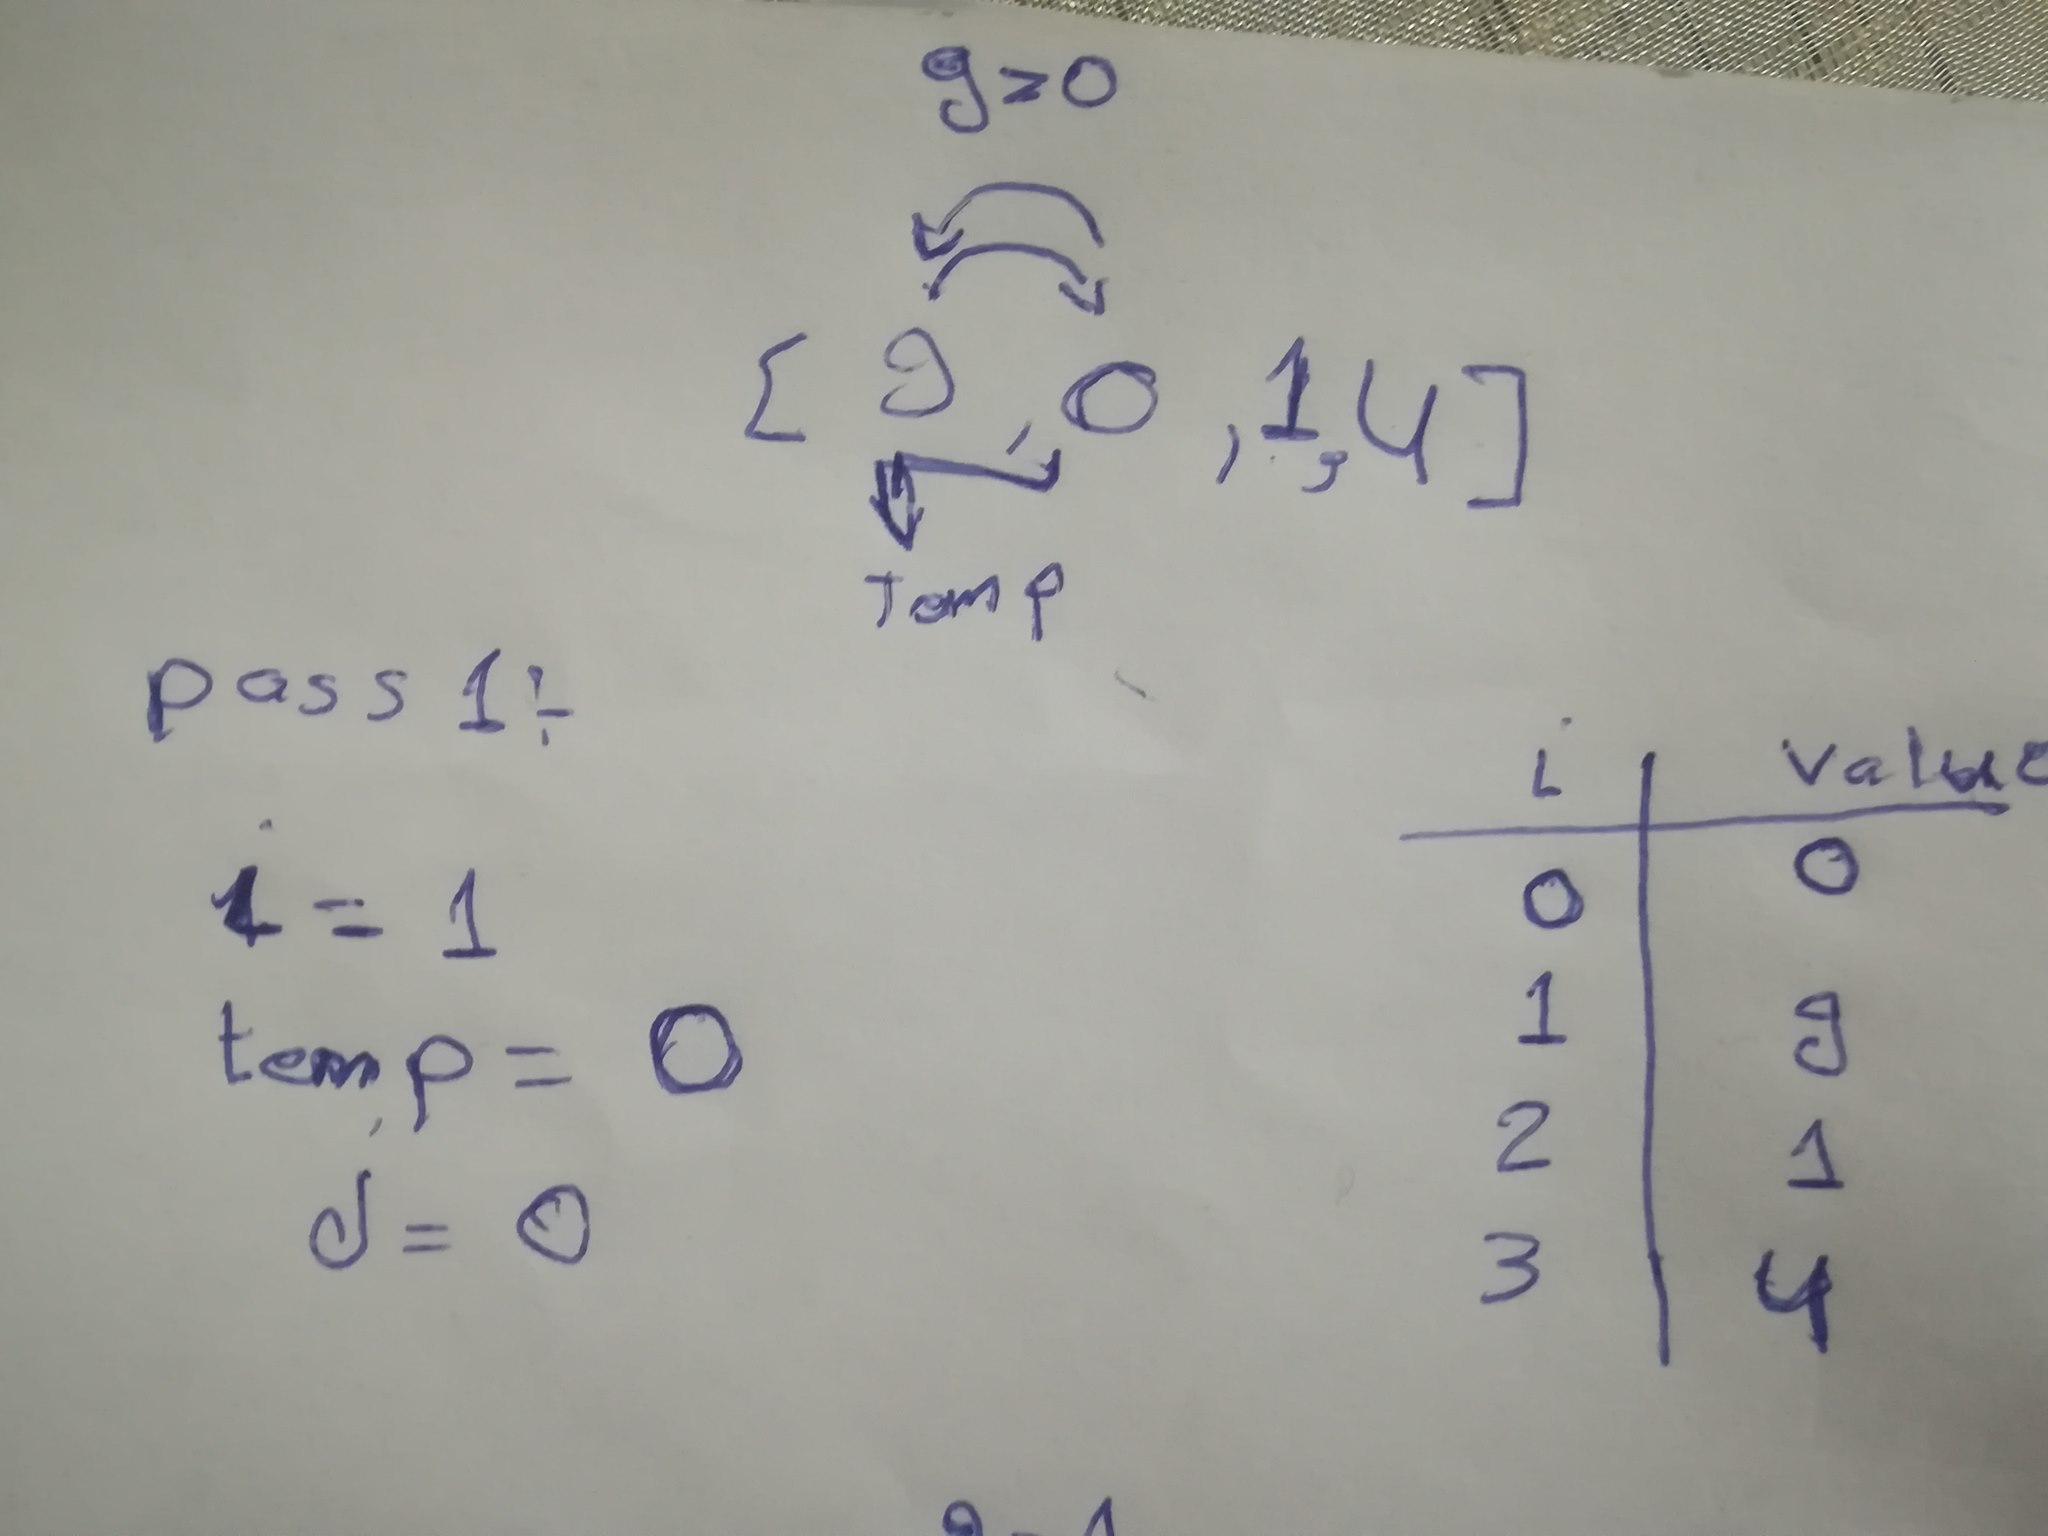 9>0
[ 9 , 0 , 1 , 4 ]
Temp
pass 1:-
i = 1
temp = 0
j = 0
i | value
0 | 0
1 | 9
2 | 1
3 | 4